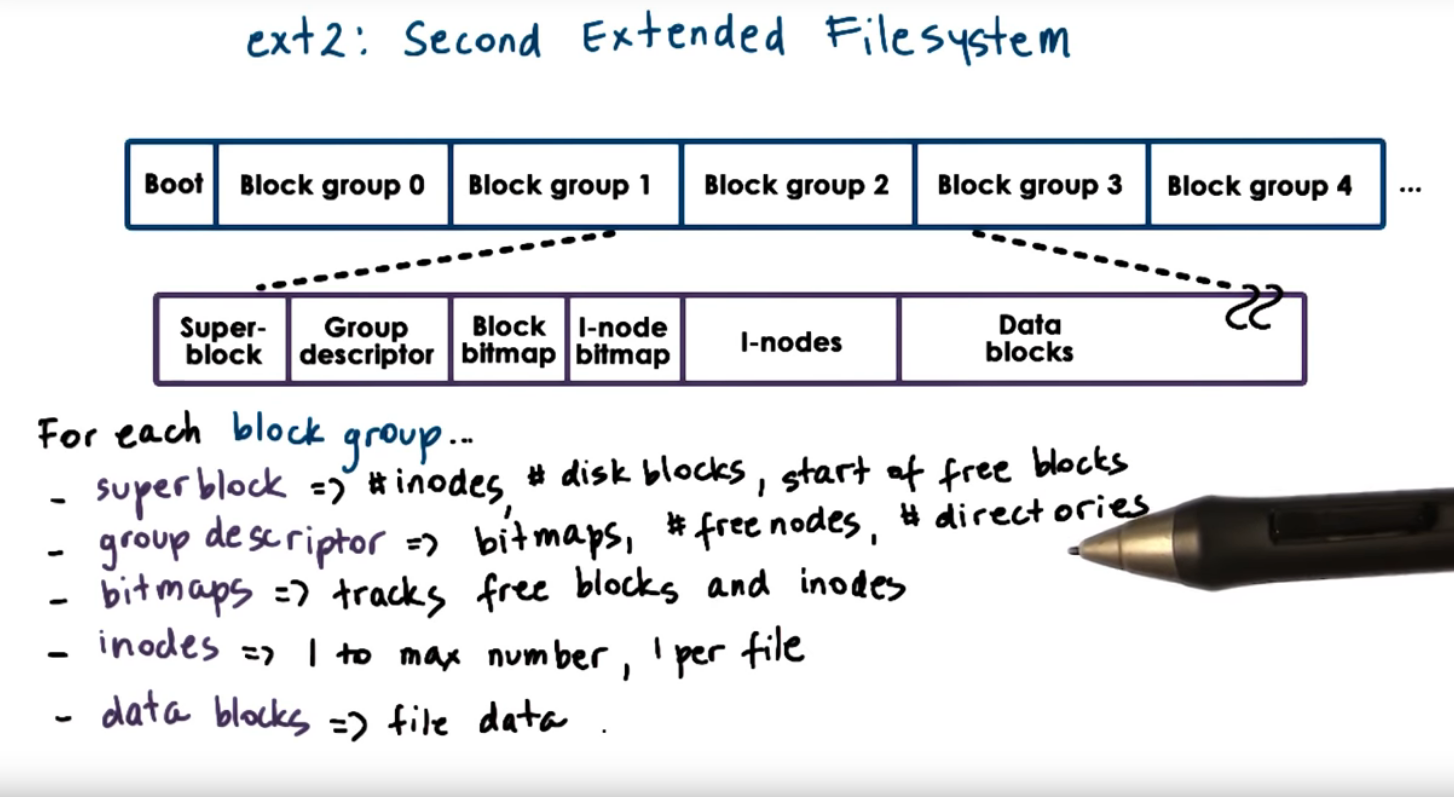 ext2: Second Extended Filesystem
Boot Block group 0 Block group 1 Block group 2 Block group 3 Block group 4 ...
Super-block Group descriptor Block bitmap I-node bitmap I-nodes Data blocks
For each block group...
- superblock => # inodes, # disk blocks, start of free blocks
- group descriptor => bitmaps, # free nodes, # directories
- bitmaps => tracks free blocks and inodes
- inodes => 1 to max number, 1 per file
- data blocks => file data.